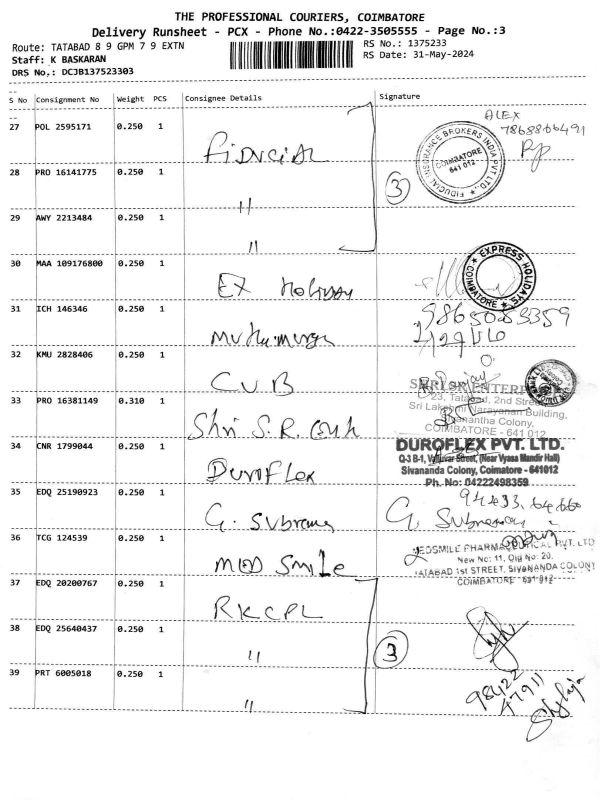 THE PROFESSIONAL COURIERS, COIMBATORE
Delivery Runsheet - PCX - Phone No.:0422-3505555 - Page No.:3
Route: TATABAD 8 9 GPM 7 9 EXTN
RS No.: 1375233
Staff: K BASKARAN
RS Date: 31-May-2024
DRS No.: DCJB137523303
S No Consignment No Weight PCS Consignee Details Signature
27 POL 2595171 0.250 1 Fiducial
ALEX
7868866491
FIDUCIAL INSURANCE BROKERS INDIA PVT LTD.,
COIMBATORE
641 012
3
28 PRO 16141775 0.250 1 "
29 AWY 2213484 0.250 1 "
30 MAA 109176800 0.250 1 EX Holiday
EXPRESS HOLIDAYS
COIMBATORE
31 ICH 146346 0.250 1
9865083359
32 KMU 2828406 0.250 1 CUB
33 PRO 16381149 0.310 1 Shri S.R.
SHRI SR ENTER
23, Tatabad, 2nd Street
Sri Lakshmi Narayanan Building,
Sivanantha Colony,
COIMBATORE - 641 012
34 CNR 1799044 0.250 1 Duroflex
DUROFLEX PVT. LTD.
Q-3 B-1, Valluvar Street, (Near Vyasa Mandir Hall)
Sivananda Colony, Coimatore - 641012
Ph. No: 04222498359
35 EDQ 25190923 0.250 1 G. Subrama
94433
G. Subraman
36 TCG 124539 0.250 1 MED Smile
MEDSMILE PHARMACEUTICAL PVT. LTD
New No: 11, Old No: 20,
TATABAD 1st STREET, SIVANANDA COLONY
COIMBATORE - 641 012
37 EDQ 20200767 0.250 1 RKCPL
38 EDQ 25640437 0.250 1 "
3
39 PRT 6005018 0.250 1 "
98422
47911